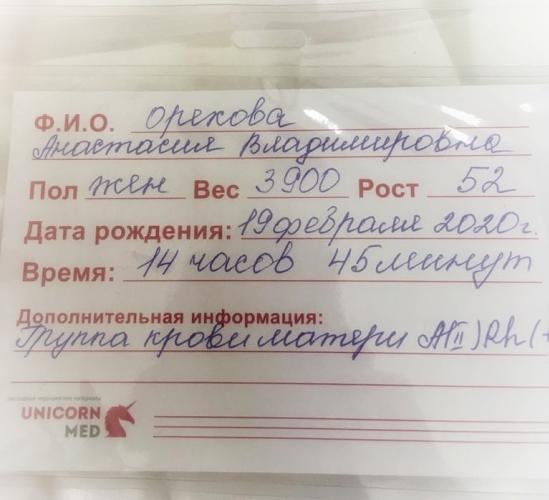 Ф.И.О. Орехова
Анастасия Владимировна
Пол жен Вес 3900 Рост 52
Дата рождения: 19 февраля 2020г.
Время: 14 часов 45 минут
Дополнительная информация:
Группа крови матери A(II) Rh(+
UNICORN
MED